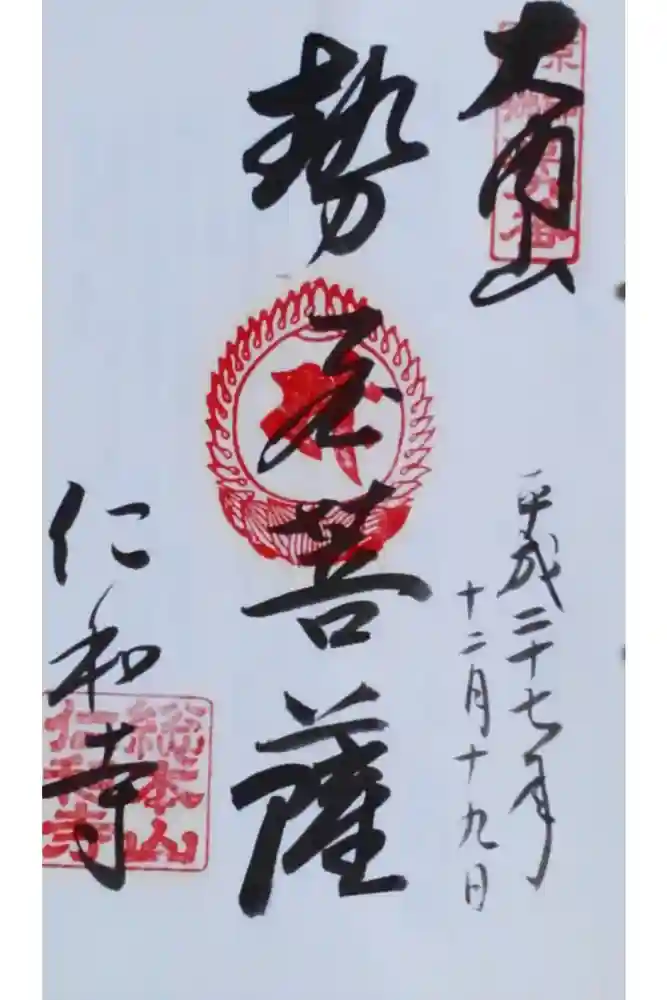 大内山
平成二十七年
十二月十九日
勢至菩薩
仁和寺
総本山
仁和寺